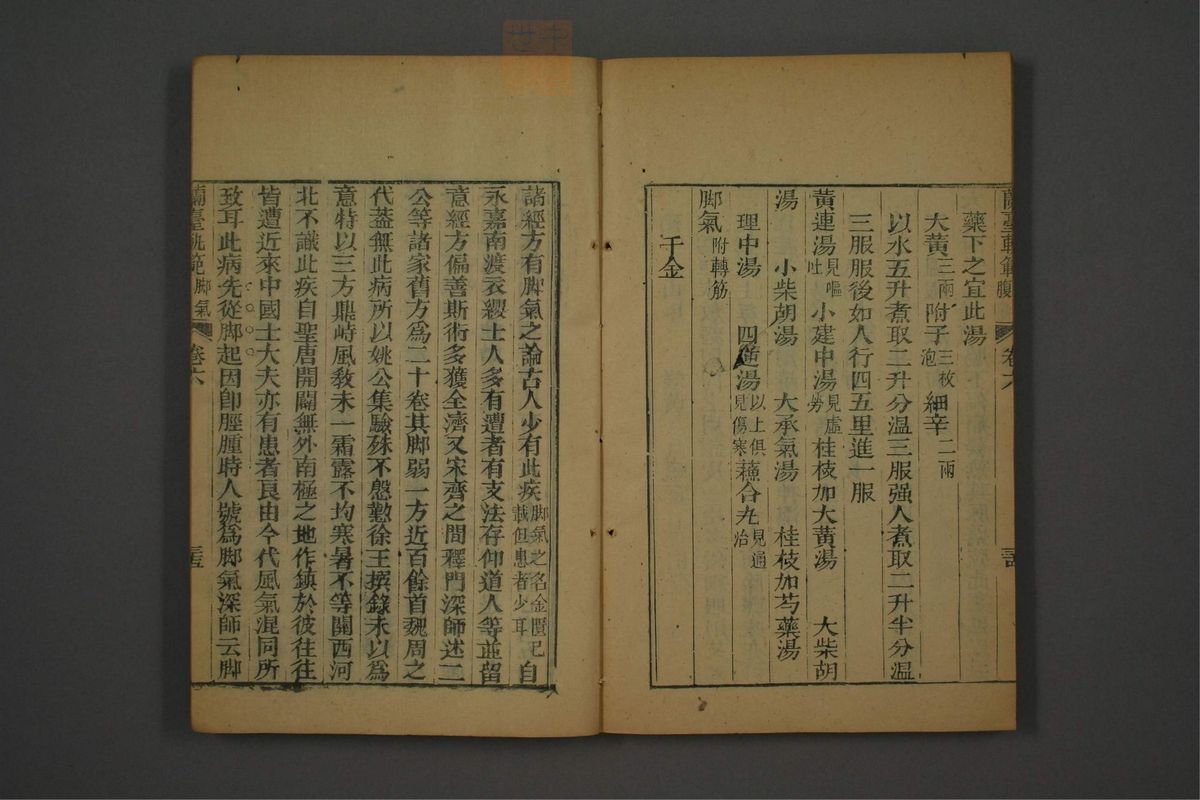 藥下之宜此湯
大黃三兩附子三枚泡細辛二兩
以水五升煮取二升分溫三服强人煮取二升半分溫
三服服後如人行四五里進一服
黃連湯見嘔吐小建中湯見虛勞桂枝加大黃湯　大柴胡
湯　小柴胡湯　大承氣湯　桂枝加芍藥湯
理中湯　四逆湯以上俱見傷寒蘇合丸見通治
脚氣附轉筋
千金
諸經方有脚氣之論古人少有此疾脚氣之名金匱已載但患者少耳自
永嘉南渡衣纓士人多有遭者有支法存仰道人等並留
意經方偏善斯術多獲全濟又宋齊之間釋門深師述二
公等諸家舊方爲二十卷其脚弱一方近百餘首魏周之
代蓋無此病所以姚公集驗殊不慇懃徐王撰錄未以爲
意特以三方鼎峙風教未一霜露不均寒暑不等關西河
北不識此疾自聖唐開闢無外南極之地作鎮於彼往往
皆遭近來中國士大夫亦有患者良由今代風氣混同所
致耳此病先從脚起因卽脛腫時人號爲脚氣深師云脚
蘭臺軌範脚氣　卷六